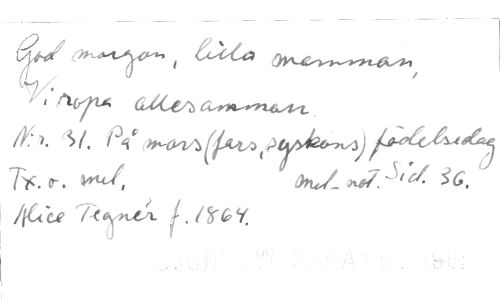 God morgon, lilla mamman,
Vi ropa allesamman.
N:r. 31. På mors (fars, syskons) födelsedag
Tx. o. mel. mel.-not. Sid. 36.
Alice Tegnér f. 1864.